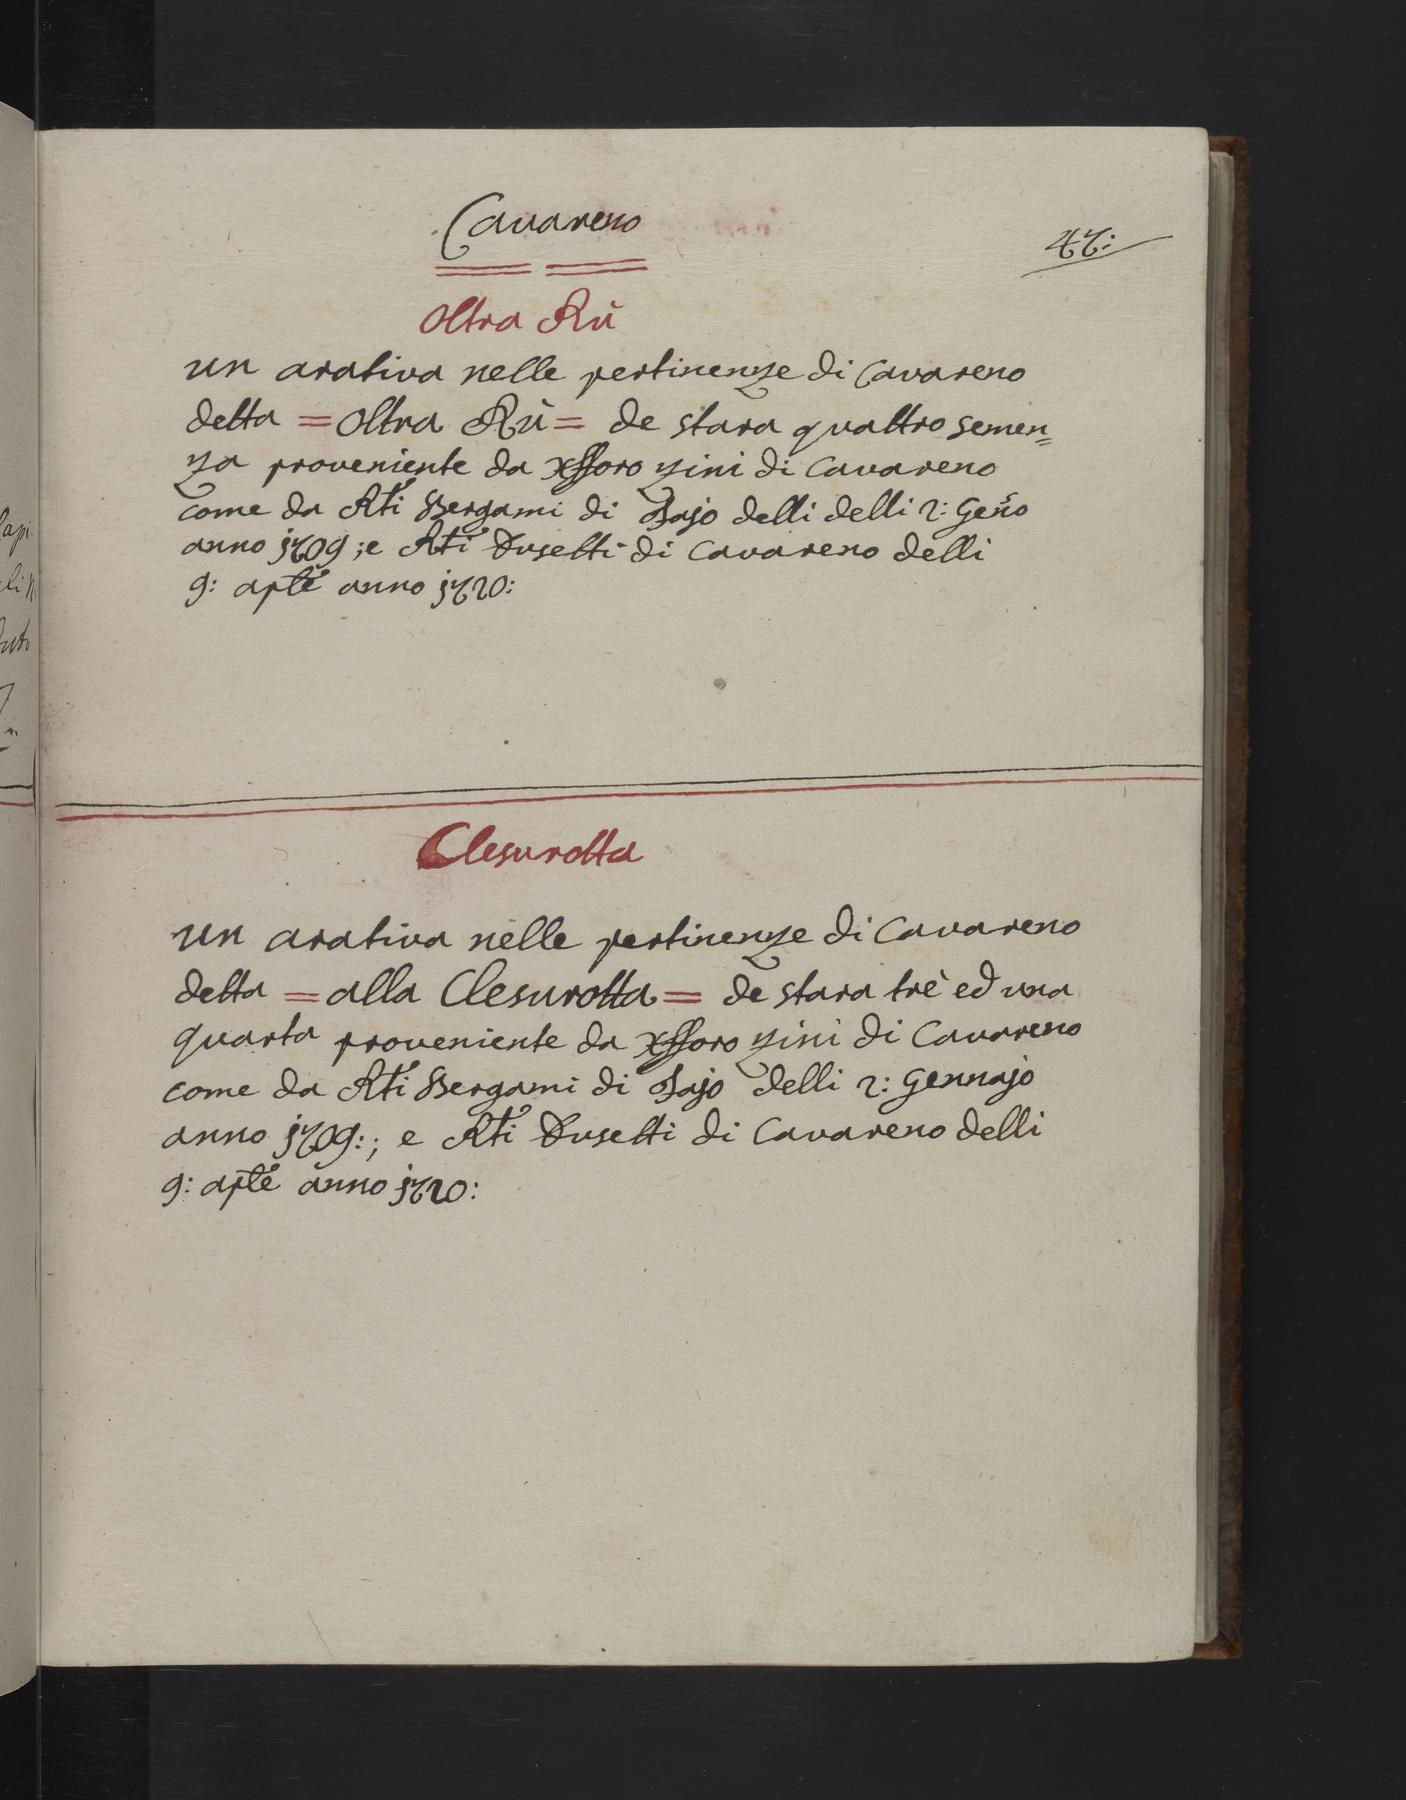 Cavareno
47:
Oltra Rù
un arativa nelle pertinenze di Cavareno
detta = Oltra Rù = de stara quattro semen=
za proveniente da Xfforo Zini di Cavareno
come da Atti Bergami di delli delli 2: Geño
anno 1709; e Atti Dusetti di Cavareno delli
9: anno 1720:
Clesurotta
un arativa nelle pertinenze di Cavareno
detta = alla Clesurotta = de stara trè ed una
quarta proveniente da Xfforo Zini di Cavareno
come da Atti Bergami di delli 2: Gennajo
anno 1709:; e Atti Dusetti di Cavareno delli
9: anno 1720: